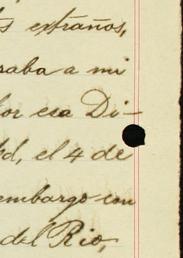 s extraños,
raba a mi
or esa Di-
d, el 4 de
embargo con
del Rio,